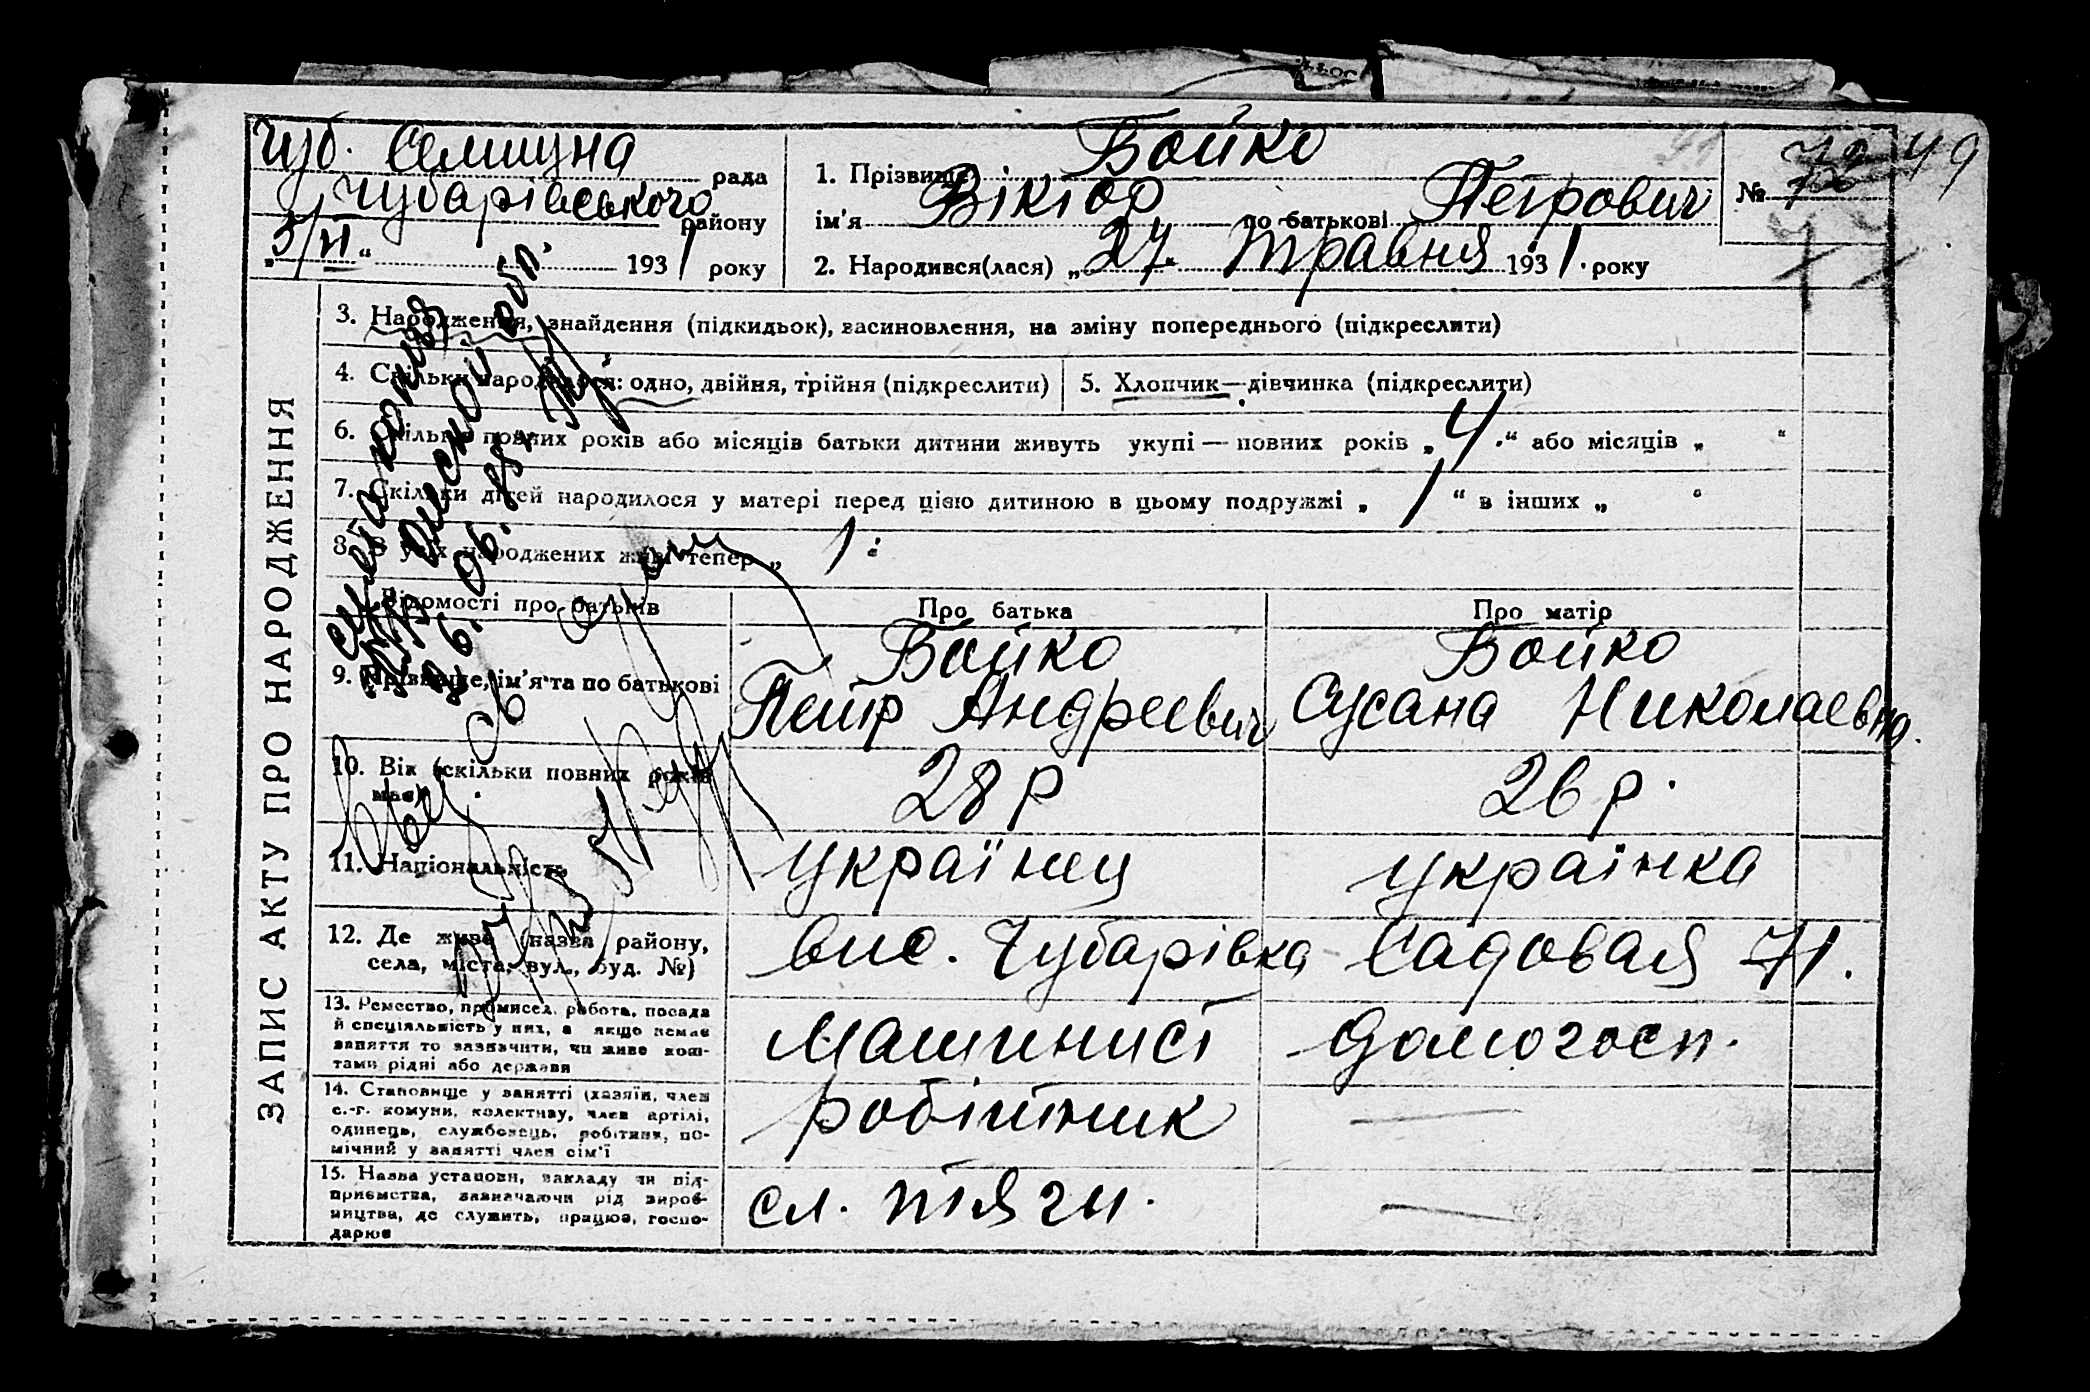 Чуб. Селищна рада
Чубарівського району
„5/VI“ 1931 року
1. Прізвище Бойко
ім'я Віктор по батькові Петрович
2. Народився(лася) „27“ травня 1931 року
№ 49
ЗАПИС АКТУ ПРО НАРОДЖЕННЯ
3. Народження, знайдення (підкидьок), засиновлення, на зміну попереднього (підкреслити)
4. Скільки народилося: одно, двійня, трійня (підкреслити)
5. Хлопчик—дівчинка (підкреслити)
6. Скільки повних років або місяців батьки дитини живуть укупі — повних років „4“ або місяців „ “
7. Скільки дітей народилося у матері перед цією дитиною в цьому подружжі „1“ в інших „ “
8. З усіх народжених живі тепер „1
Відомості про батьків
Про батька
Про матір
9. Прізвище, ім'я та по батькові
Бойко
Петр Андреевич
Бойко
Сусана Николаевна.
10. Вік (скільки повних років має)
28 р
26 р.
11. Національність
українец
українка
12. Де живе (назва району,
села, міста, вул., буд. №)
вис. Чубарівка Садовая 71.
13. Ремество, промисел, робота, посада
й спеціяльність у них, а якщо немає
заняття то зазначити, чи живе кош-
тами рідні або держави
Машиніст
домогосп.
14. Становище у занятті (хазяїн, член
с.-г. комуни, колективу, член артілі,
одинець, службовець, робітник, по-
мічний у занятті член сім'ї
робітник
15. Назва установи, закладу чи під-
приємства, зазначаючи рід вироб-
ництва, де служить, працює, госпо-
дарює
сл. тяги.